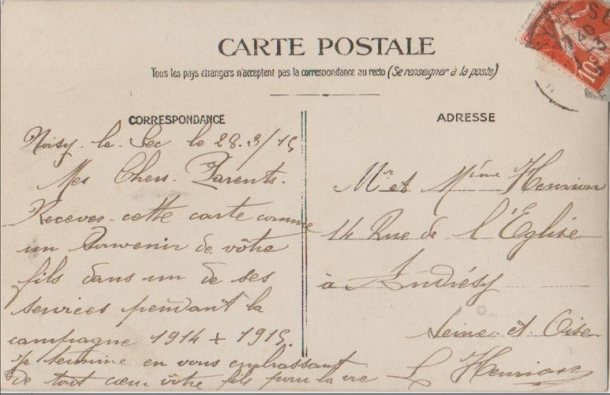 CARTE POSTALE
Tous les pays étrangers n'acceptent pas la correspondance au recto (Se renseigner à la poste)
CORRESPONDANCE
Noisy-le-Sec le 28.3/15
Mes Chers Parents.
Recevez cette carte comme
un Souvenir de vôtre
fils dans un de ses
services pendant la
campagne 1914 + 1915.
je termine en vous embrassant
de tout cœur vôtre fils pour la vie
ADRESSE
Mr et Mme Henrion
14 Rue de l'Eglise
à Andrésy
Seine-et-Oise
Henrion
10c